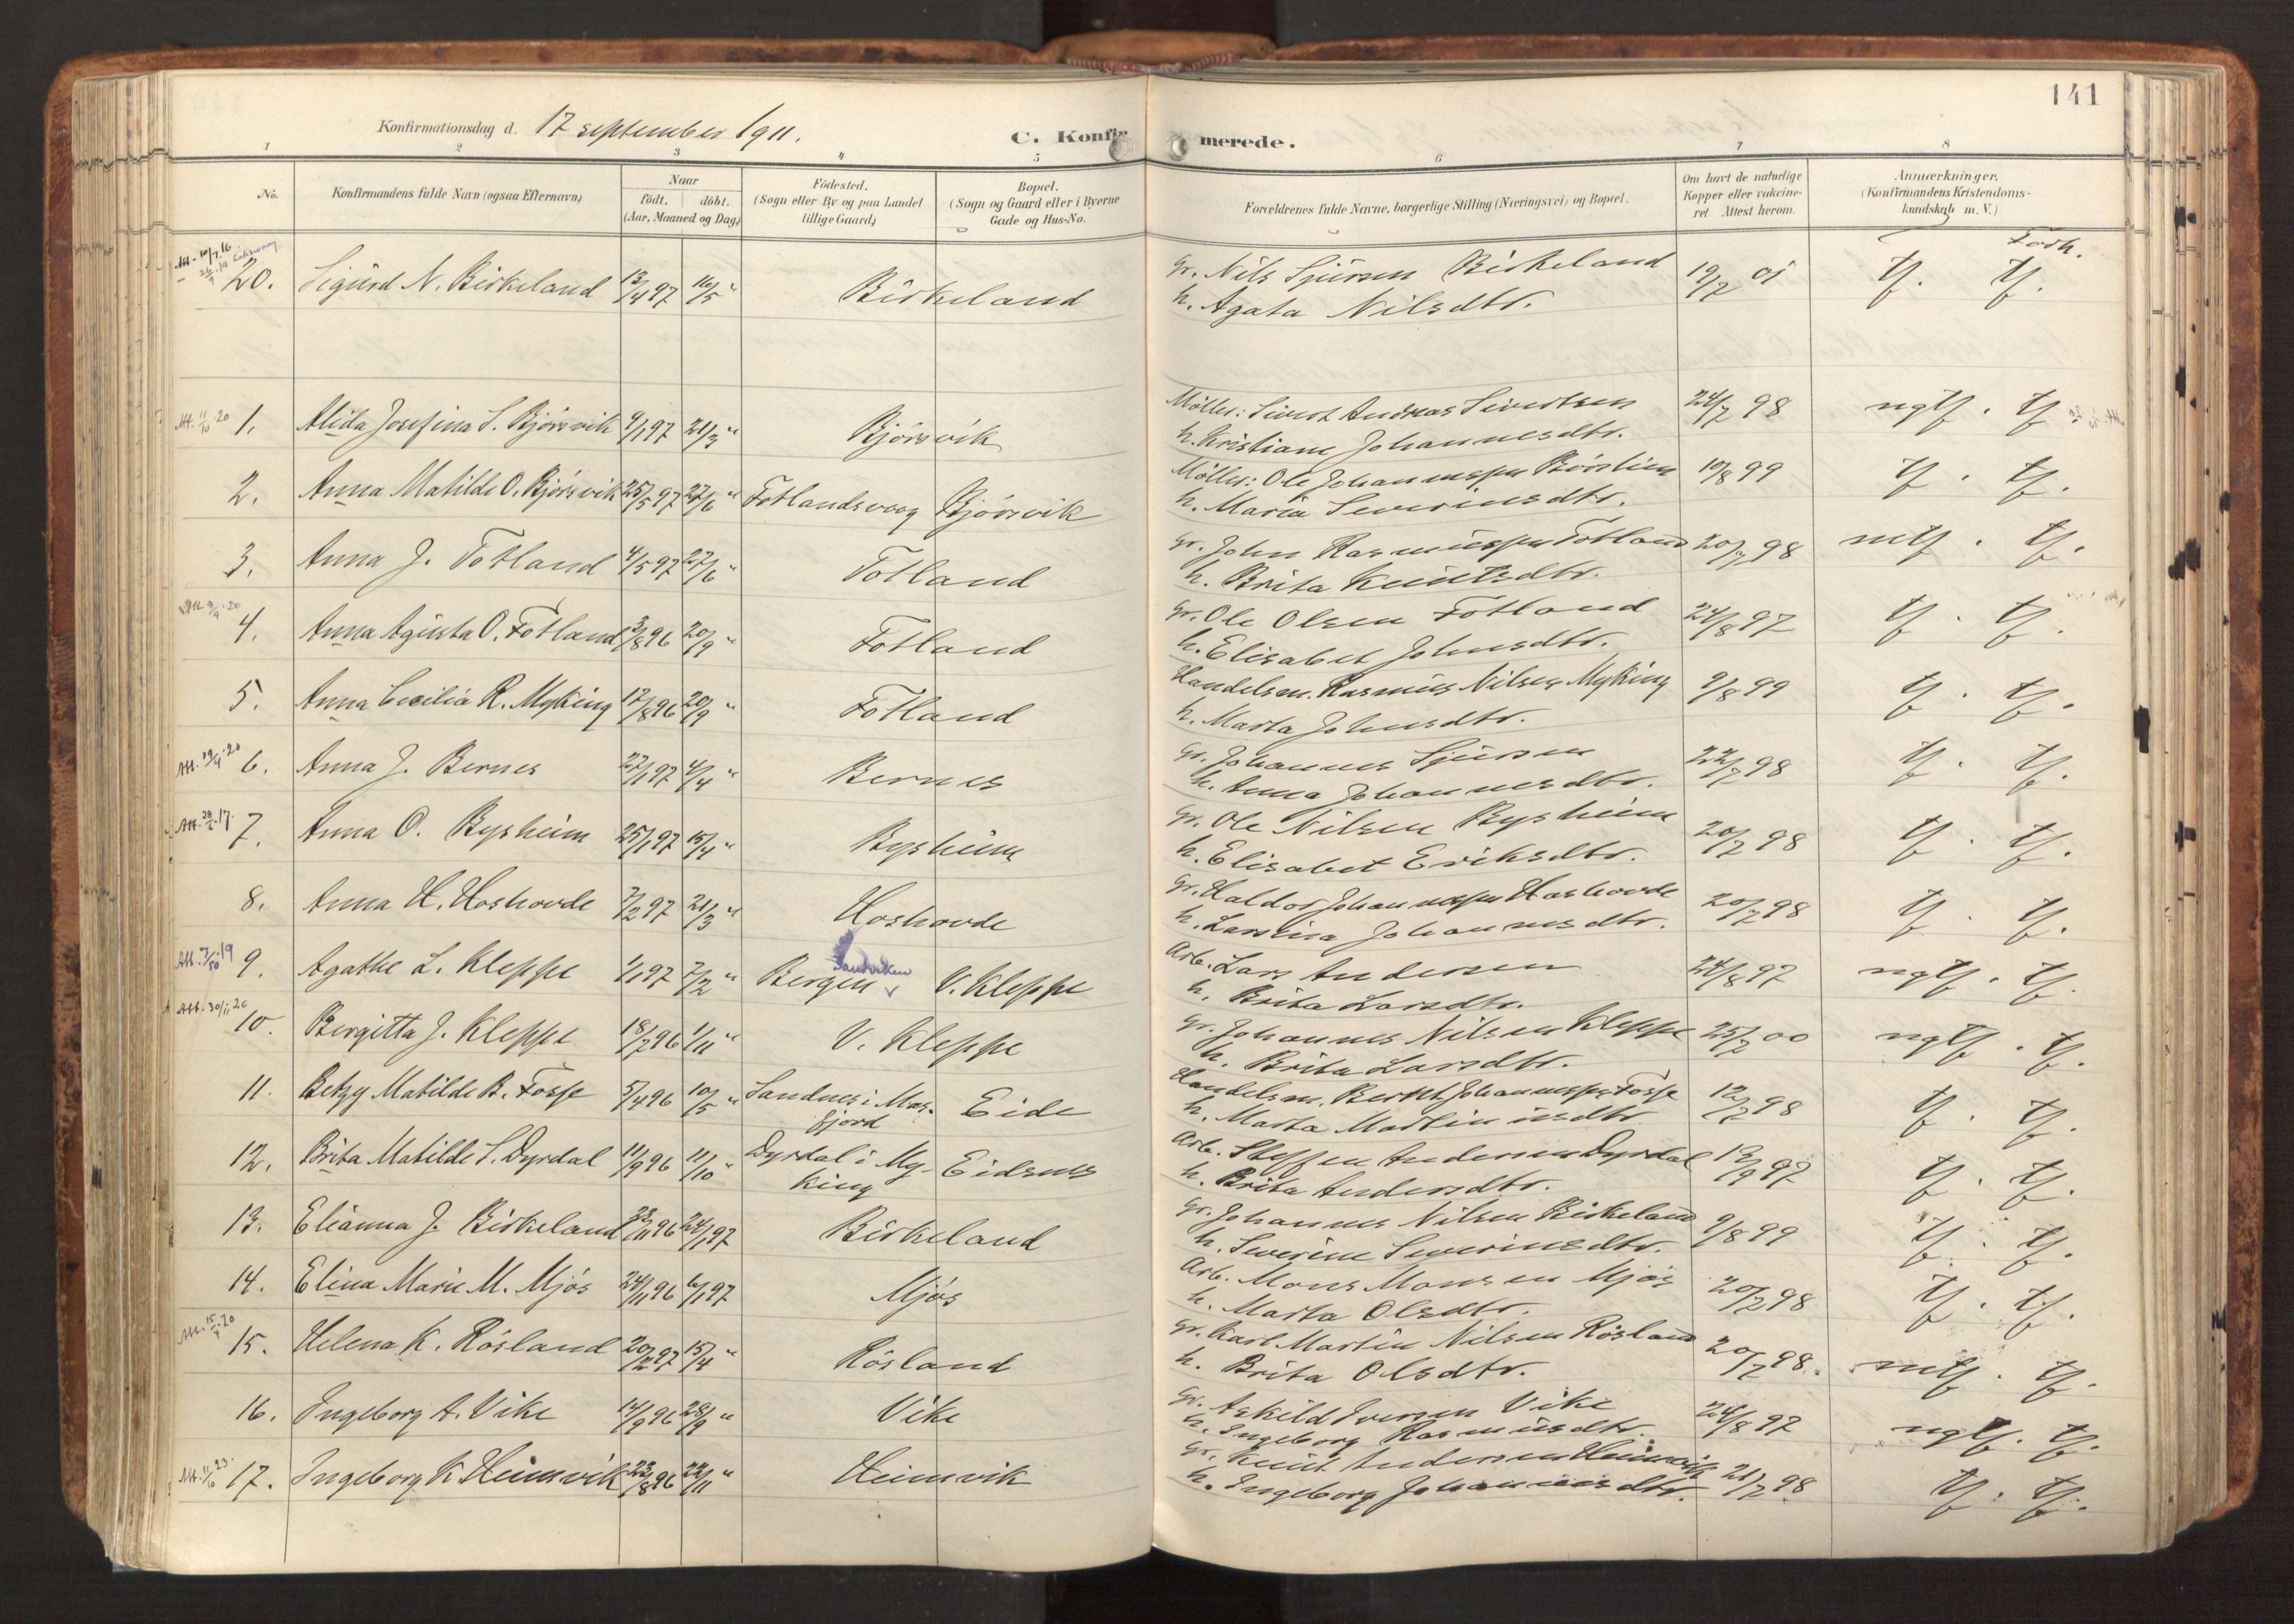 141
Konfirmationsdag d. 17 september 1911.
C. Konfirmerede.
1 2 3 4 5 6 7 8
No. Konfirmandens fulde Navn (ogsaa Efternavn) Naar Födested. Bopæl. Forældrenes fulde Navne, borgerlige Stilling (Næringsvei) og Bopæl. Om havt de naturlige Anmærkninger.
födt. döbt. (Sogn eller By og paa Landet (Sogn og Gaard eller i Byerne Kopper eller vakcine- (Konfirmandens Kristendoms-
(Aar, Maaned og Dag) tillige Gaard) Gade og Hus-No. ret. Attest herom. kundskab m. V.)
Forh.
20. Sigurd N. Birkeland 13/4 97 16/5 " Birkeland Gr. Nils Sjursen Birkeland 19/2 01 tf. tf.
h. Agata Nilsdtr.
Att. 11/10 20 1. Alida Josefina S. Bjørsvik 9/1 97 21/3 " Bjørsvik Møller: Sivert Andreas Sivertsen 24/7 98 ngtf. tf
h. Kristiane Johannesdtr.
2. Anna Matilde O. Bjørsvik 25/5 97 27/6 " Fotlandsvaag Bjørsvik Møller: Ole Johannessen 10/8 99 tf. tf.
h. Maria Severinsdtr.
3. Anna J. Totland 4/5 97 27/6 " Totland Gr. John Rasmussen Totland 20/7 98 mtf. tf.
h. Brita Knutsdtr.
4. Anna Agusta O. Fotland 13/8 96 20/9 " Fotland Gr. Ole Olsen Fotland 24/8 97 tf. tf.
h. Elisabet Johnsdtr.
5. Anna Cecilia R. Myking 12/8 96 20/9 " Fotland Handelsm. Rasmus Nilsen Myking 9/8 99 tf. tf.
h. Marta Johnsdtr.
Att. 19/4 20 6. Anna J. Bernes 27/1 97 4/4 " Bernes Gr. Johannes Sjursen 22/7 98 tf. tf.
h. Anna Johannesdtr.
7. Anna O. Bysheim 25/1 97 15/4 " Bysheim Gr. Ole Nilsen Bysheim 20/7 98 tf. tf.
h. Elisabet Eriksdtr.
8. Anna H. Hoshovde 7/2 97 21/3 " Hoshovde Gr. Haldor Johannessen Hoshovde 20/7 98 tf. tf.
h. Larsina Johannesdtr.
Att. 7/10 19 9. Agathe L. Kleppe 1/1 97 7/2 " Bergen Sandviken V. Kleppe Arb. Lars Andersen 24/8 97 ngtf. tf.
h. Brita Larsdtr.
Att. 30/11 20 10. Bergitta J. Kleppe 18/7 96 1/11 " V. Kleppe Gr. Johannes Nilsen Kleppe 25/2 00 ngtf. tf.
h. Brita Larsdtr.
11. Betzy Matilde B. Fosse 5/4 96 10/5 " Sandnes i Mas- Eide Handelsm. Berndt Johannessen Fosse 12/7 98 tf. tf.
fjord h. Marta Martinusdtr
12. Brita Matilde S. Dyrdal 11/9 96 11/10 " Dyrdal i My- Eidsnes Arb. Steffen Andersen Dyrdal 13/9 97 tf. tf.
king h. Brita Andersdtr.
13. Elianna J. Birkeland 23/11 96 24/1 97 Birkeland Gr. Johannes Nilsen Birkeland 9/8 99 tf. tf.
h. Severine Severinsdtr.
14. Elina Marie M. Mjøs 24/11 96 6/1 97 Mjøs Arb. Mons Monsen Mjøs 20/7 98 tf. tf.
h. Marta Olsdtr.
Att. 15/4 20 15. Helena K. Røsland 97 15/4 " Røsland Gr. Karl Martin Nilsen Røsland 20/7 98. mtf. tf.
h. Brita Olsdtr.
16. Ingeborg A. Vike 14/9 96 28/9 " Vike Gr. Askild Iversen Vike 24/8 97 ngtf. tf.
h. Ingeborg Rasmusdtr.
Att. 11/10 23. 17. Ingeborg K. Heimvik 23/8 96 22/11 " Heimvik Gr. Knut Andersen Heimvik 21/7 98 tf. tf.
h. Ingeborg Johannesdtr.